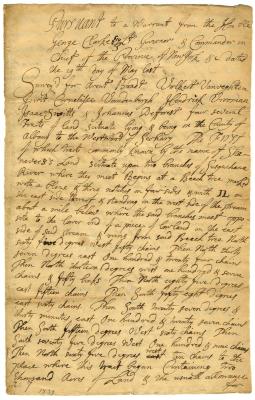 Pursuant to a Warrant from the Hon. Ge
orge Clarke Esqr Governor & Commander in
Chief of the Province of New York & dated
the 19th day of May last
Survey'd for Arent Bradt Volkert Vanveghten
Cornelise Vandenbergh Hendrick Vrooman
Jacob & Johannes Deforest four several
Tracts of Land situate lying & being in the County of
Albany to the Westward of One
of which tracts commonly known by the name of
Land situate upon two branches of
River where they meet Begins at a Beech tree marked
with a & three notches on four sides & with
the east side thereof & standing on the west side of the stream
about a mile below where the said branches meet oppo-
site to the lower end of a piece of Low land on the east
side of said stream & runs from said Beech tree North
sixty five degrees West fifty chains Then North twenty
seven degrees east One hundred & twenty chains
Then North thirteen degrees west one hundred & seven
chains & fifty links Then North eighty five degrees
east fifteen chains Then South fifty eight degrees
east sixty chains Then South twenty seven degrees &
thirty minutes east One hundred & twenty seven chains
Then South fifteen degrees West sixty chains Then
South seventy five degrees West One hundred & nine chains
Then North sixty five degrees west ten chains to the
place where this tract began Containing two
thousand Acres of Land & the usual allowance
for